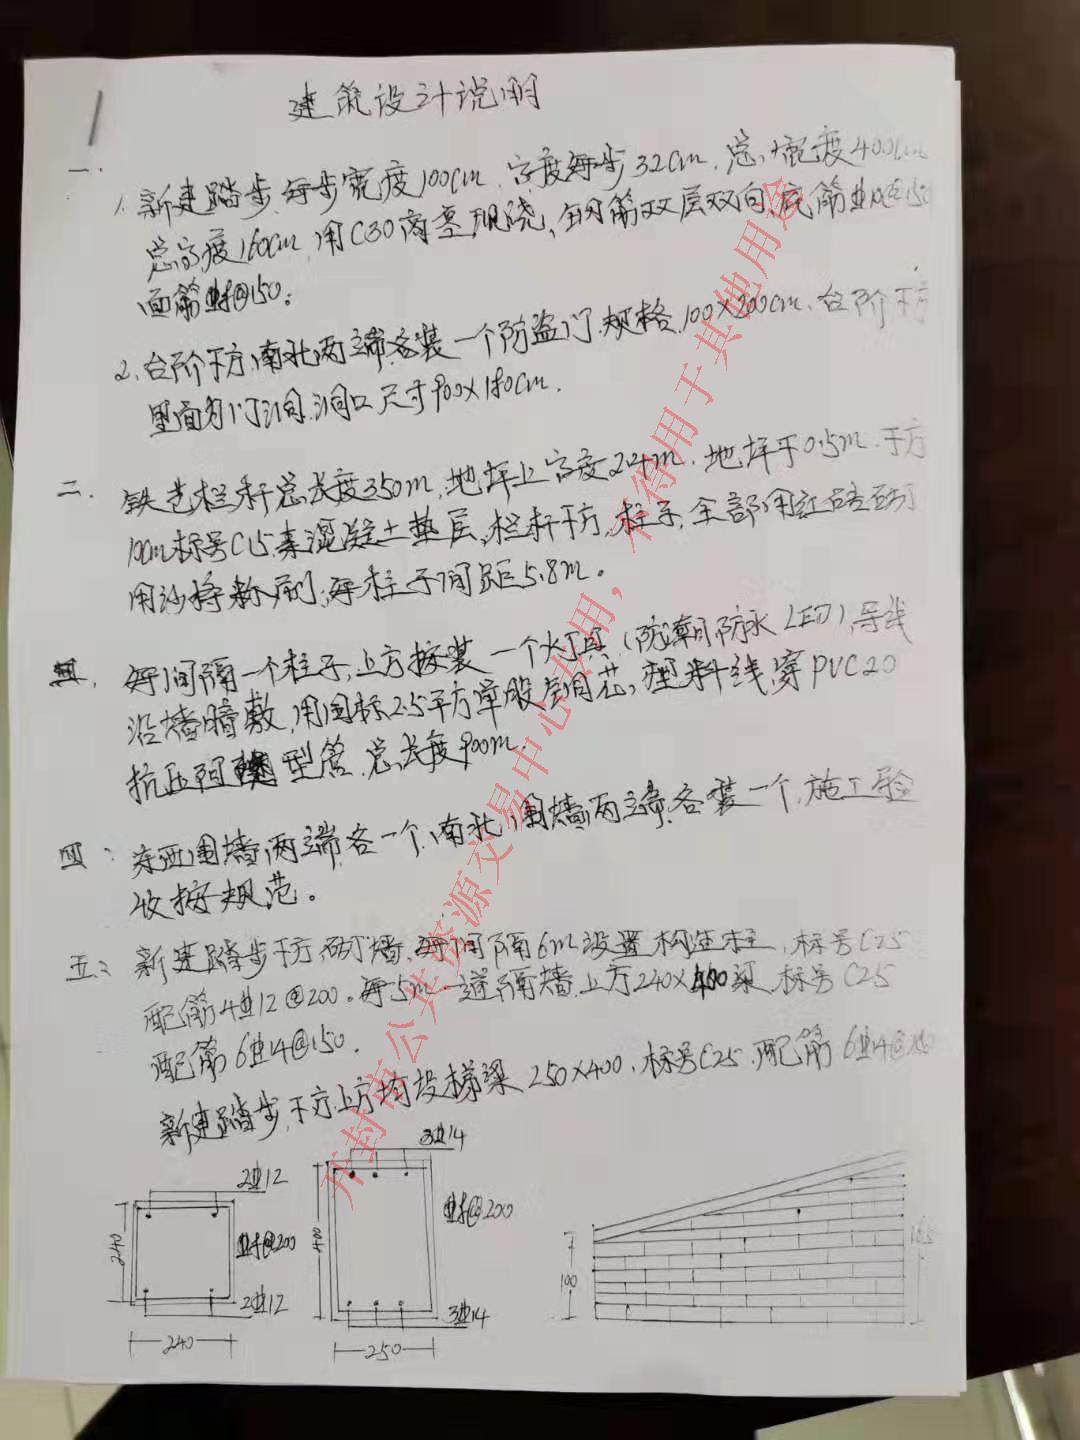 建筑设计说明
一.
1. 新建踏步,每步宽度100cm,高度每步32cm,总宽度400cm
总高度160cm,用C30商砼现浇,钢筋双层双向,底筋@150
面筋@150;
2. 台阶下方,南北两端各装一个防盗门,规格100×200cm,台阶下方
里面为门洞,洞口尺寸900×180cm.
二. 铁艺栏杆总长度350m,地坪上高度2.4m,地坪下0.5m.下方
10cm标号C15素混凝土垫层,栏杆下方,柱子,全部用红砖砌
用沙将粉刷,每柱子间距5.8m。
三. 每间隔一个柱子,上方按装一个灯具(防潮防水LED),导线
沿墙暗敷,用国标2.5平方单股铜芯,塑料线,穿PVC20
抗压阻型管,总长度900m.
四: 东西围墙两端各一个,南北围墙两端,各装一个,施工验
收按规范。
五: 新建踏步下方砌墙,每间隔6m设置构造柱,标号C25
配筋4Φ12@200。每5m一道隔墙,上方240×400梁,标号C25
配筋6Φ14@150.
新建踏步,下方上方均设梯梁250×400,标号C25.配筋6Φ14@150
3Φ14
2Φ12
@200
@200
240
400
100
2Φ12
3Φ14
240
250
开封市公共资源交易中心专用,不得用于其他用途